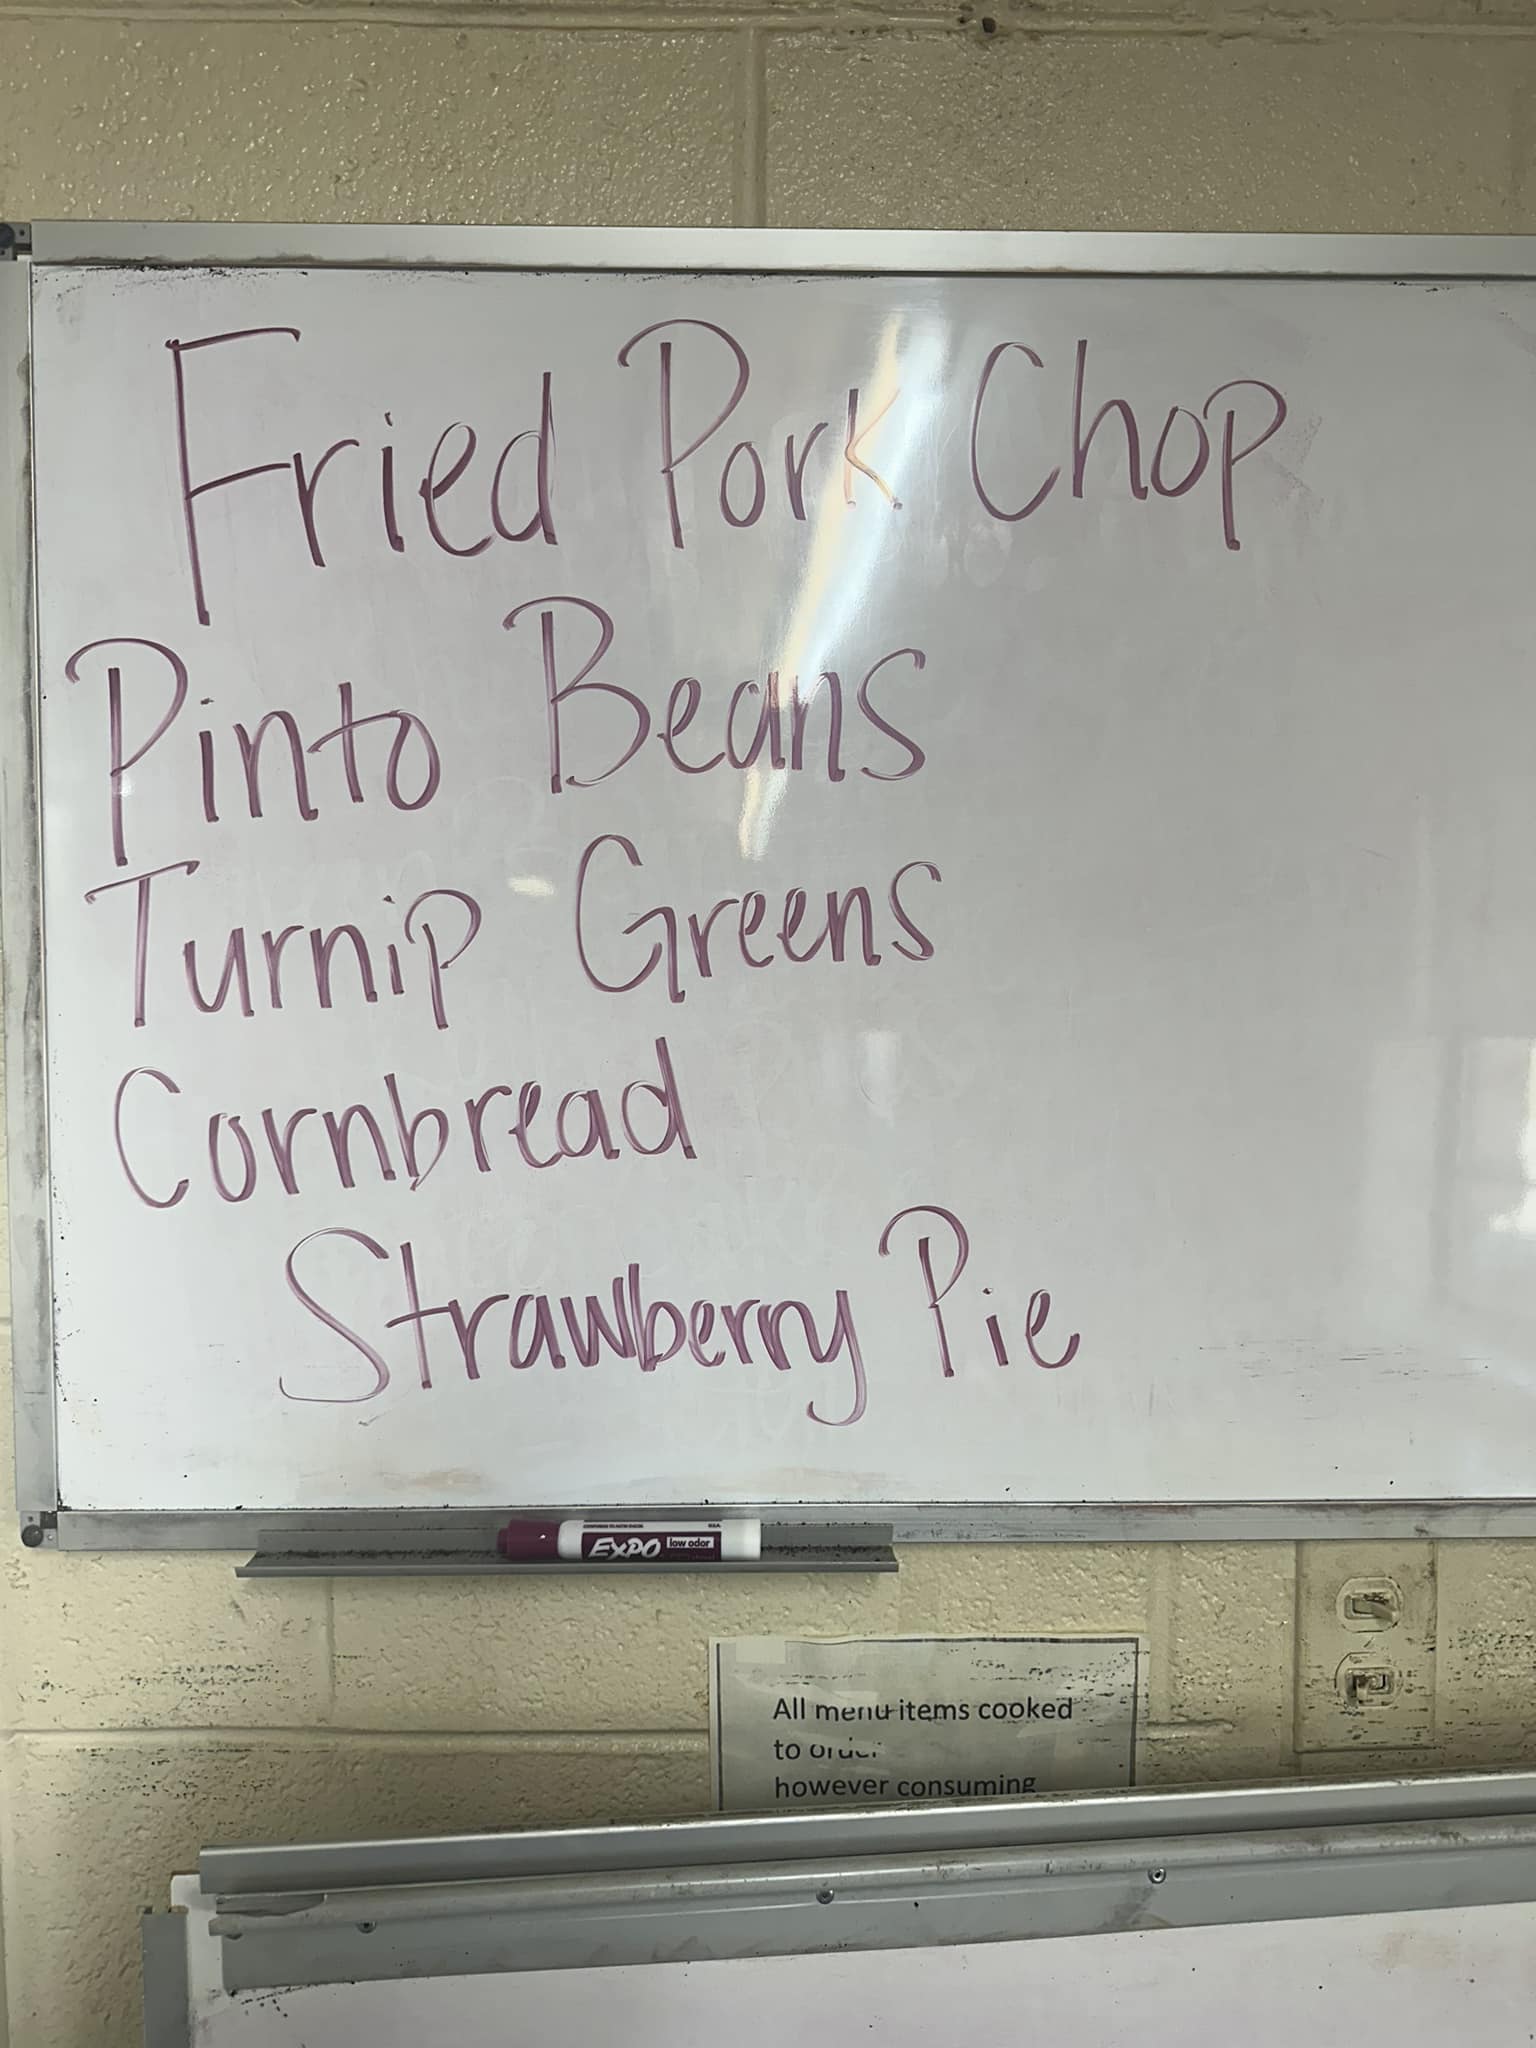 Fried Pork Chop
Pinto Beans
Turnip Greens
Cornbread
Strawberry Pie
EXPO low odor
All menu items cooked
to order
however consuming